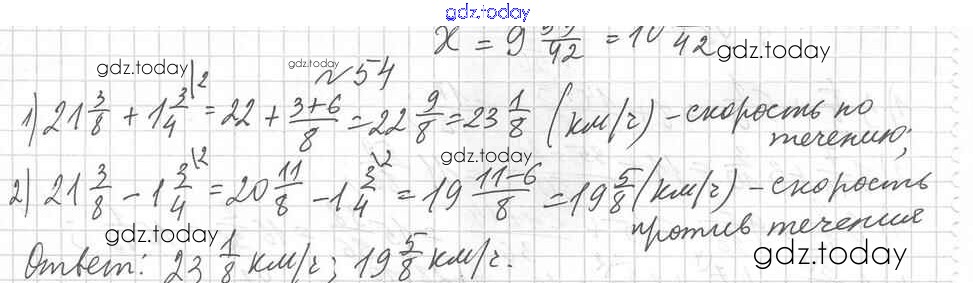 gdz.today
x = 9 42 = 10 42 gdz.today
gdz.today gdz.today №54
1) 21 3/8 + 1 3/4 |2 = 22 + 3+6/8 = 22 9/8 = 23 1/8 (км/ч) – скорость по
течению;
gdz.today
2) 21 3/8 – 1 3/4 \2 = 20 11/8 – 1 3/4 \2 = 19 11–6/8 = 19 5/8 (км/ч) – скорость
против течения
gdz.today
Ответ: 23 1/8 км/ч; 19 5/8 км/ч.
gdz.today